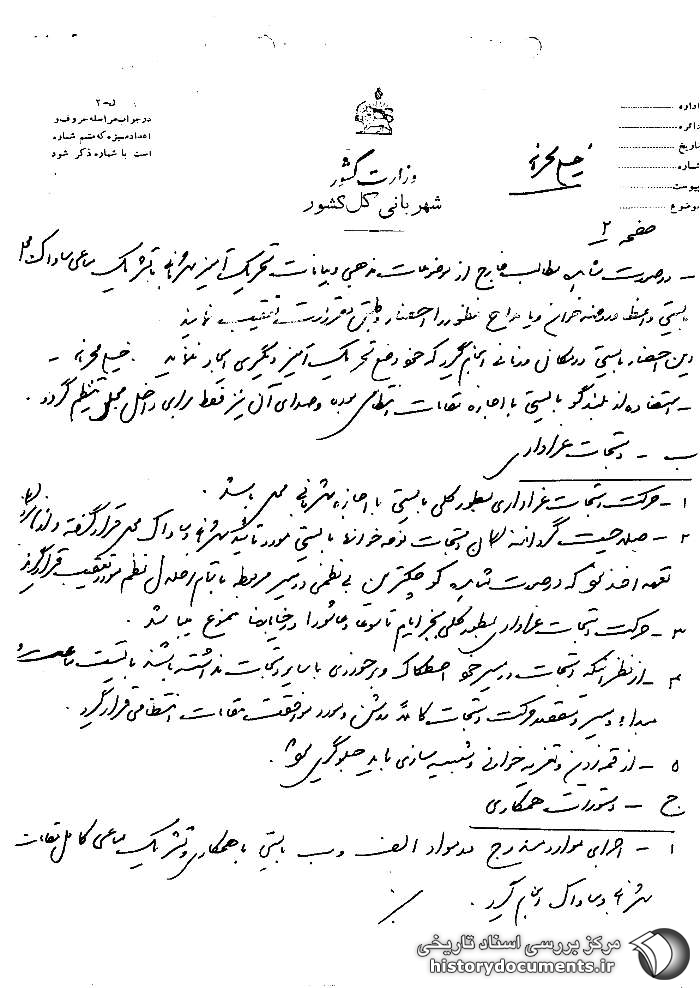 ل-۳
در جواب مراسله حروف و
اعداد ممیزه که متمم شماره
است با شماره ذکر شود
اداره
دائره
تاریخ
شماره
پیوست
موضوع
وزارت کشور
شهربانی کل کشور
خیلی محرمانه
صفحه ۲
- در صورت مطالب خارج از موضوعات مذهبی و بیانات تحریک آمیز شهربانی با تشریک مساعی ساواک محل
بایستی واعظ روضه خوان و یا مداح منظور احضار و طبق مقررات تعقیب نمایند
این احضار بایستی در مکان و زمانی انجام گیرد که خود وضع تحریک آمیز دیگری ایجاد ننماید . خیلی محرمانه -
- استفاده از بلندگو بایستی با اجازه مقامات انتظامی بوده و صدای آن نیز فقط برای داخل مجلس تنظیم گردد .
ب - دستجات عزاداری
۱ - حرکت دستجات عزاداری بطور کلی بایستی با اجازه شهربانی محل باشد .
۲ - صلاحیت گردانندگان دستجات نوحه خوانها بایستی مورد تأیید شهربانی و ساواک محل قرار گرفته و از آنها
تعهد اخذ شود که در صورت کوچکترین بی نظمی در مسیر مربوطه با تمام اخلال نظم مورد تعقیب قرار گیرند
۳ - حرکت دستجات عزاداری بطور کلی بجز ایام تاسوعا و عاشورا در خیابانها ممنوع میباشد .
۴ - از نظر اینکه دستجات در مسیر خود اصطکاک و برخوردی با سایر دستجات نداشته باشند بایست ساعت و
مبداء و مسیر و مقصد حرکت دستجات کاملاً روشن و مورد موافقت مقامات انتظامی قرار گیرد .
۵ - از قمه زدن و تعزیه خوانی و شبیه سازی باید جلوگیری شود .
ج - دستورات همکاری
۱ - اجرای موارد مندرج در مواد الف و ب بایستی با همکاری و تشریک مساعی کامل مقامات
شهربانی و ساواک انجام گیرد .
مرکز بررسی اسناد تاریخی
historydocuments.ir